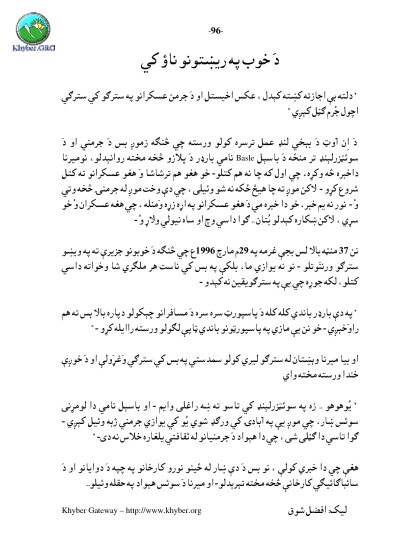 Khyber.ORG
-96-
دَ خوب په ريښتونو ناؤ کي
" دلته بې اجازته کښته کېدل ، عکس اخيستل او دَ جرمن عسکرانو په سترګو کي سترګي
اچول جُرم ګڼل کېږي "
دَ اِن آوټ دَ بېخي لنډ عمل ترسره کولو ورسته چي څنګه زموږ بس دَ جرمني او دَ
سوئټزرلېنډ تر منځه دَ باسېل Basle نامي بارډر دَ پلازو څخه مخته روانېدلو، نو ميرنا
داخبره څه وکړه، چي اول که چا نه هم کتلو- خو هغو هم ترشاشا وَ هغو عسکرانو ته کتل
شروع کړو - لاکن موږ ته چا هيڅ ځکه نه شو وئيلی ، چي دې وخت موږ له جرمني څخه وتي
وُ - نور نه يم خبر، خو دا خبره مي دَ هغو عسکرانو په اړه زړه وَمنله ، چي هغه عسکران وُ خو
سړي ، لاکن ښکاره کېدلو بُتان.. ګوا داسي وچ او ساه نيولي ولاړ وُ -
نن 37 منټه بالا لس بجې غرمه په 29م مارچ 1996ع چي څنګه دَ خوبونو جزيرې ته په ويښو
سترګو ورننوتلو - نو نه يوازي ما، بلکې په بس کي ناست هر ملګري شا وخواته داسي
کتلو ، لکه جوړه چي يې په سترګو يقين نه کېدو -
" په دې بارډر باندي کله کله دَ پاسپورټ سره سره دَ مسافرانو چېکولو دپاره بالا بس ته هم
راوَخېږي - خو نن يې مازي په پاسپورټونو باندي ټاپې لګولو ورسته راايله کړو - "
او بيا ميرنا وېښتان له سترګو ليري کولو سمدستي په بس کي سترګي وَغړولې او دَ خوږې
خندا ورسته مخته واي
" يُوهوهو .. زه په سوئټزرلېنډ کي تاسو ته ښه راغلی وايم - او باسېل نامي دا لومړنی
سوئس ښار، چي موږ يې په آبادۍ کي ورګډ شوي يُو کي يوازي جرمني ژبه وئيل کېږي -
ګوا تاسي دا ګڼلی شی ، چي دا هېواد دَ جرمنيانو له ثقافتي يلغاره خلاس نه دی-"
هغې چي دا خبري کولې ، نو بس دَ دې ښار له ځينو نورو کارخانو په چپه دَ دوايانو او دَ
سائباګائيګي کارخانې څخه مخته تېرېدلو - او ميرنا دَ سوئس هېواد په حقله وئيلو..
Khyber Gateway – http://www.khyber.org ليک: افضل شوق